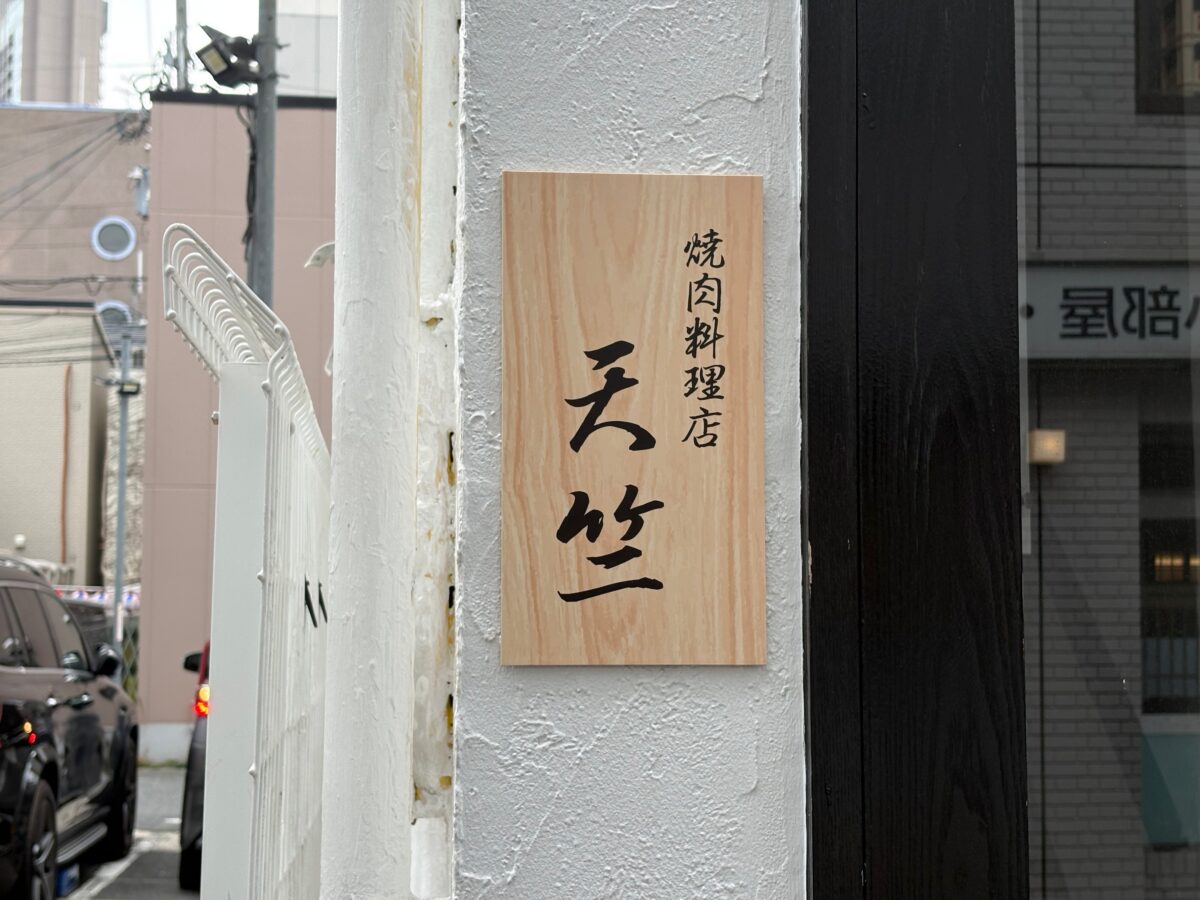 焼肉料理店
天竺
部屋